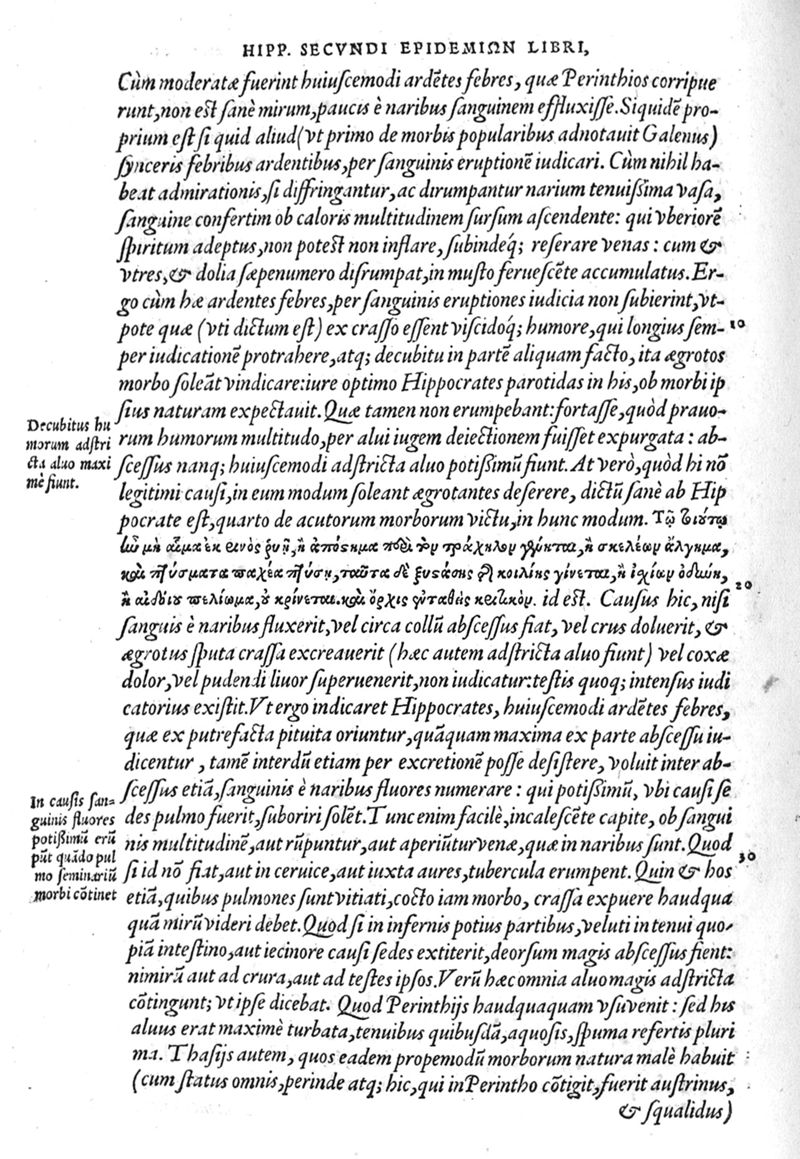 HIPP. SECVNDI EPIDEMIΩN LIBRI,
Cùm moderatæ fuerint huiuſcemodi ardẽtes febres, quæ Perinthios corripue
runt, non eſt ſanè mirum, paucis è naribus ſanguinem effluxiſſe. Siquidẽ pro-
prium eſt ſi quid aliud (vt primo de morbis popularibus adnotauit Galenus)
ſynceris febribus ardentibus, per ſanguinis eruptionẽ iudicari. Cùm nihil ha-
beat admirationis, ſi diffringantur, ac dirumpantur narium tenuiſsima vaſa,
ſanguine confertim ob caloris multitudinem ſurſum aſcendente: qui vberiorẽ
ſpiritum adeptus, non poteſt non inflare, ſubindeq́; reſerare venas: cum &
vtres, & dolia ſæpenumero diſrumpat, in muſto ferueſcẽte accumulatus. Er-
go cùm hæ ardentes febres, per ſanguinis eruptiones iudicia non ſubierint, vt-
pote quæ (vti dictum eſt) ex craſſo eſſent viſcidoq́; humore, qui longius ſem-
10
per iudicationẽ protrahere, atq; decubitu in partẽ aliquam facto, ita ægrotos
morbo ſoleãt vindicare: iure optimo Hippocrates parotidas in his, ob morbi ip
ſius naturam expectauit. Quæ tamen non erumpebant: fortaſſe, quòd prauo-
Decubitus hu
morum adſtri
cta aluo maxi
mè fiunt.
rum humorum multitudo, per alui iugem deiectionem fuiſſet expurgata: ab-
ſceſſus nanq; huiuſcemodi adſtricta aluo potiſsimũ fiunt. At verò, quòd hi nõ
legitimi cauſi, in eum modum ſoleant ægrotantes deſerere, dictũ ſanè ab Hip
pocrate eſt, quarto de acutorum morborum victu, in hunc modum. Τῷ
μὴ αἷμα ἐκ ῥινὸς ῥυῇ, ἢ ἀπόστημα τὸν τράχηλον γένηται, ἢ σκελέων ἄλγημα,
καὶ πτύσματα παχέα πτύσῃ, ταῦτα δὲ ξυστάσης κοιλίης γίνεται, ἢ ἰσχίων ὀδύνη,
20
ἢ αἰδοίου πελίωμα, οὐ κρίνεται. καὶ ὄρχις id eſt. Cauſus hic, niſi
ſanguis è naribus fluxerit, vel circa collũ abſceſſus fiat, vel crus doluerit, &
ægrotus ſputa craſſa excreauerit (hæc autem adſtricta aluo fiunt) vel coxæ
dolor, vel pudendi liuor ſuperuenerit, non iudicatur: teſtis quoq; intenſus iudi
catorius exiſtit. Vt ergo indicaret Hippocrates, huiuſcemodi ardẽtes febres,
quæ ex putrefacta pituita oriuntur, quãquam maxima ex parte abſceſſu iu-
dicentur, tamẽ interdũ etiam per excretionẽ poſſe deſiſtere, voluit inter ab-
In cauſis ſan-
guinis fluores
potiſsimũ erũ
pũt quãdo pul
mo ſeminariũ
morbi cõtinet
ſceſſus etiã, ſanguinis è naribus fluores numerare: qui potiſsimũ, vbi cauſi ſe
des pulmo fuerit, ſuboriri ſolẽt. Tunc enim facilè, incaleſcẽte capite, ob ſangui
nis multitudinẽ, aut rũpuntur, aut aperiũtur venæ, quæ in naribus ſunt. Quod
30
ſi id nõ fiat, aut in ceruice, aut iuxta aures, tubercula erumpent. Quin & hos
etiã, quibus pulmones ſunt vitiati, cocto iam morbo, craſſa expuere haudqua
quã mirũ videri debet. Quod ſi in infernis potius partibus, veluti in tenui quo-
piã inteſtino, aut iecinore cauſi ſedes extiterit, deorſum magis abſceſſus fient:
nimirũ aut ad crura, aut ad teſtes ipſos. Verũ hæc omnia aluo magis adſtricta
cõtingunt; vt ipſe dicebat. Quod Perinthijs haudquaquam vſuvenit: ſed his
aluus erat maximè turbata, tenuibus quibuſdã, aquoſis, ſpuma refertis pluri
ma. Thaſijs autem, quos eadem propemodũ morborum natura malè habuit
(cum ſtatus omnis, perinde atq; hic, qui in Perintho cõtigit, fuerit auſtrinus,
& ſqualidus)